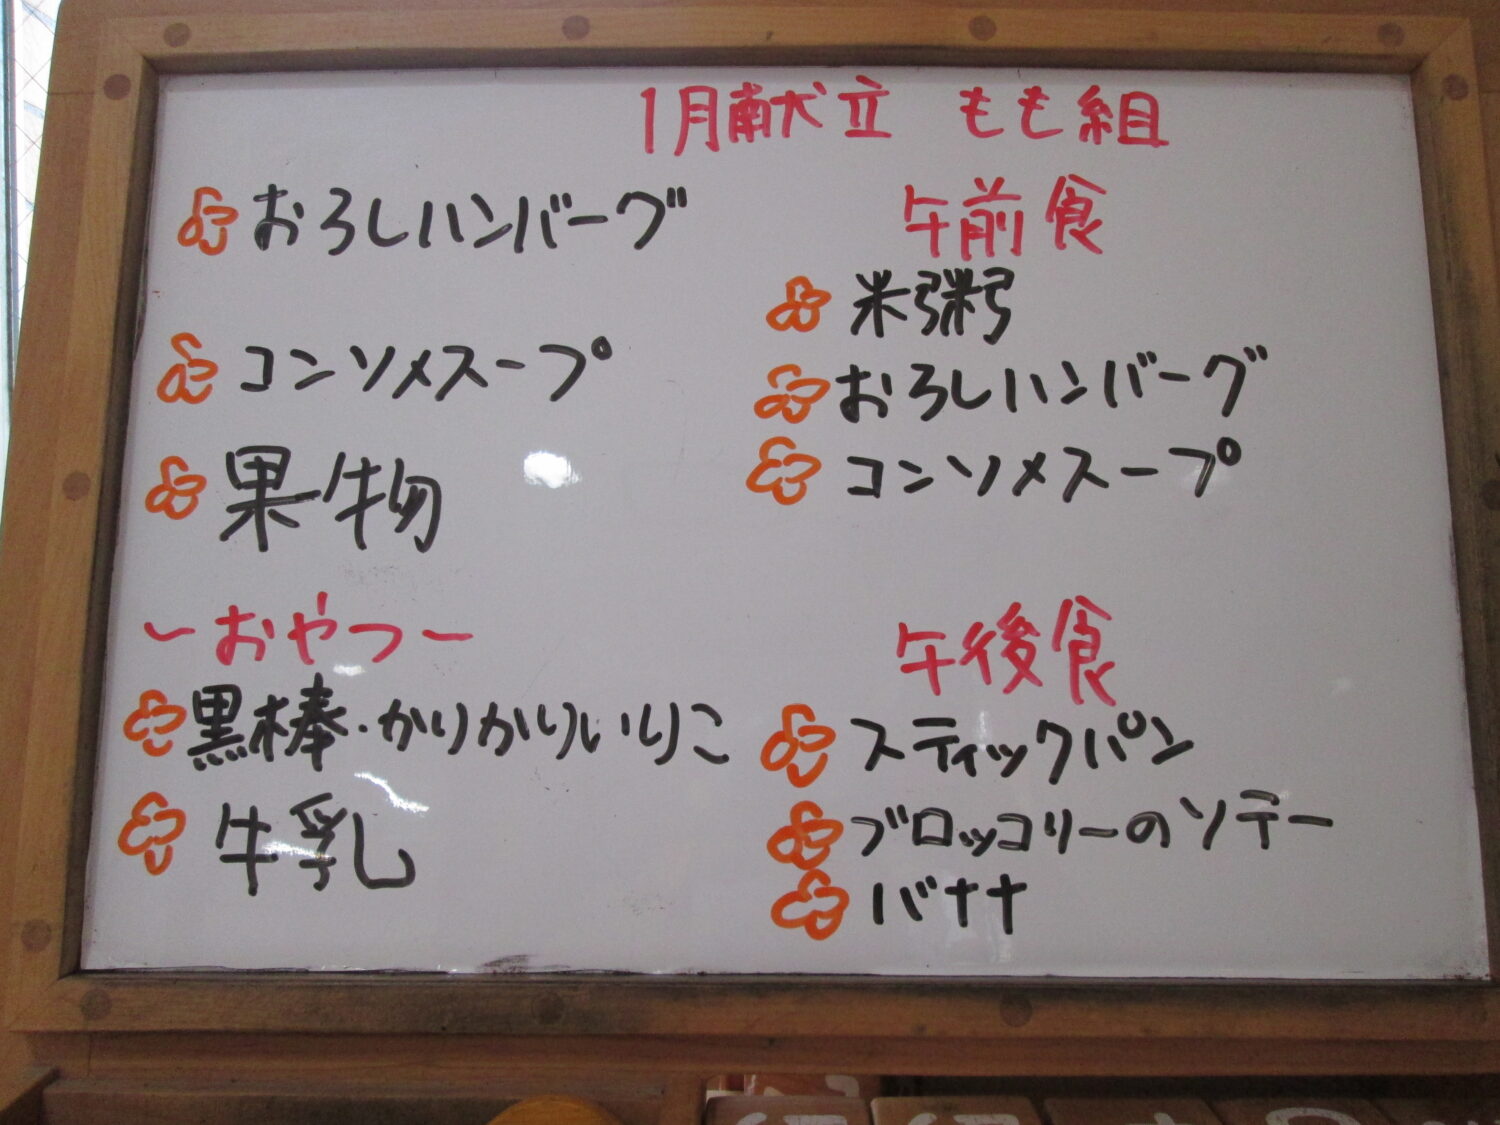 1月献立 もも組
おろしハンバーグ
コンソメスープ
果物
～おやつ～
黒棒・かりかりいりこ
牛乳
午前食
米粥
おろしハンバーグ
コンソメスープ
午後食
スティックパン
ブロッコリーのソテー
バナナ